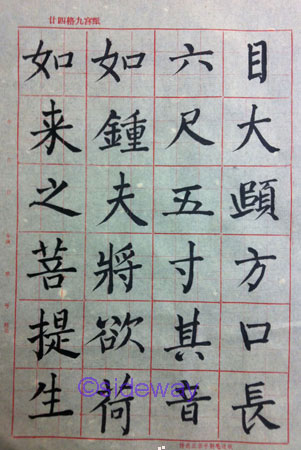 廿四格九宮紙
目大頤方口長
六尺五寸其音
如鍾夫將欲荷
如来之菩提生
©sideway